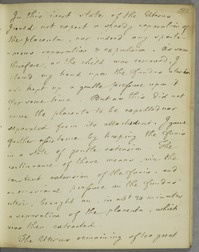 In this inert state of the Uterus
I could not expect a steady, separation of
the placenta, nor indeed any sponta-
neous separation & expulsion. As soon
therefore, as the child was removed, I
placed my hand upon the fundus
and kept up a gentle pressure
for some time. But as this did not
cause the placenta to be expelled nor
separated from its attachment, I gave
further assistance by keeping the funis
in a state of gentle extension. The
continuance of these means, viz. the
constant extension of the funis, and
occasional pressure on the fundus
uteri, brought on, in abt 20 minutes
a separation of the placenta, which
was then extracted.
The Uterus remaining of too great